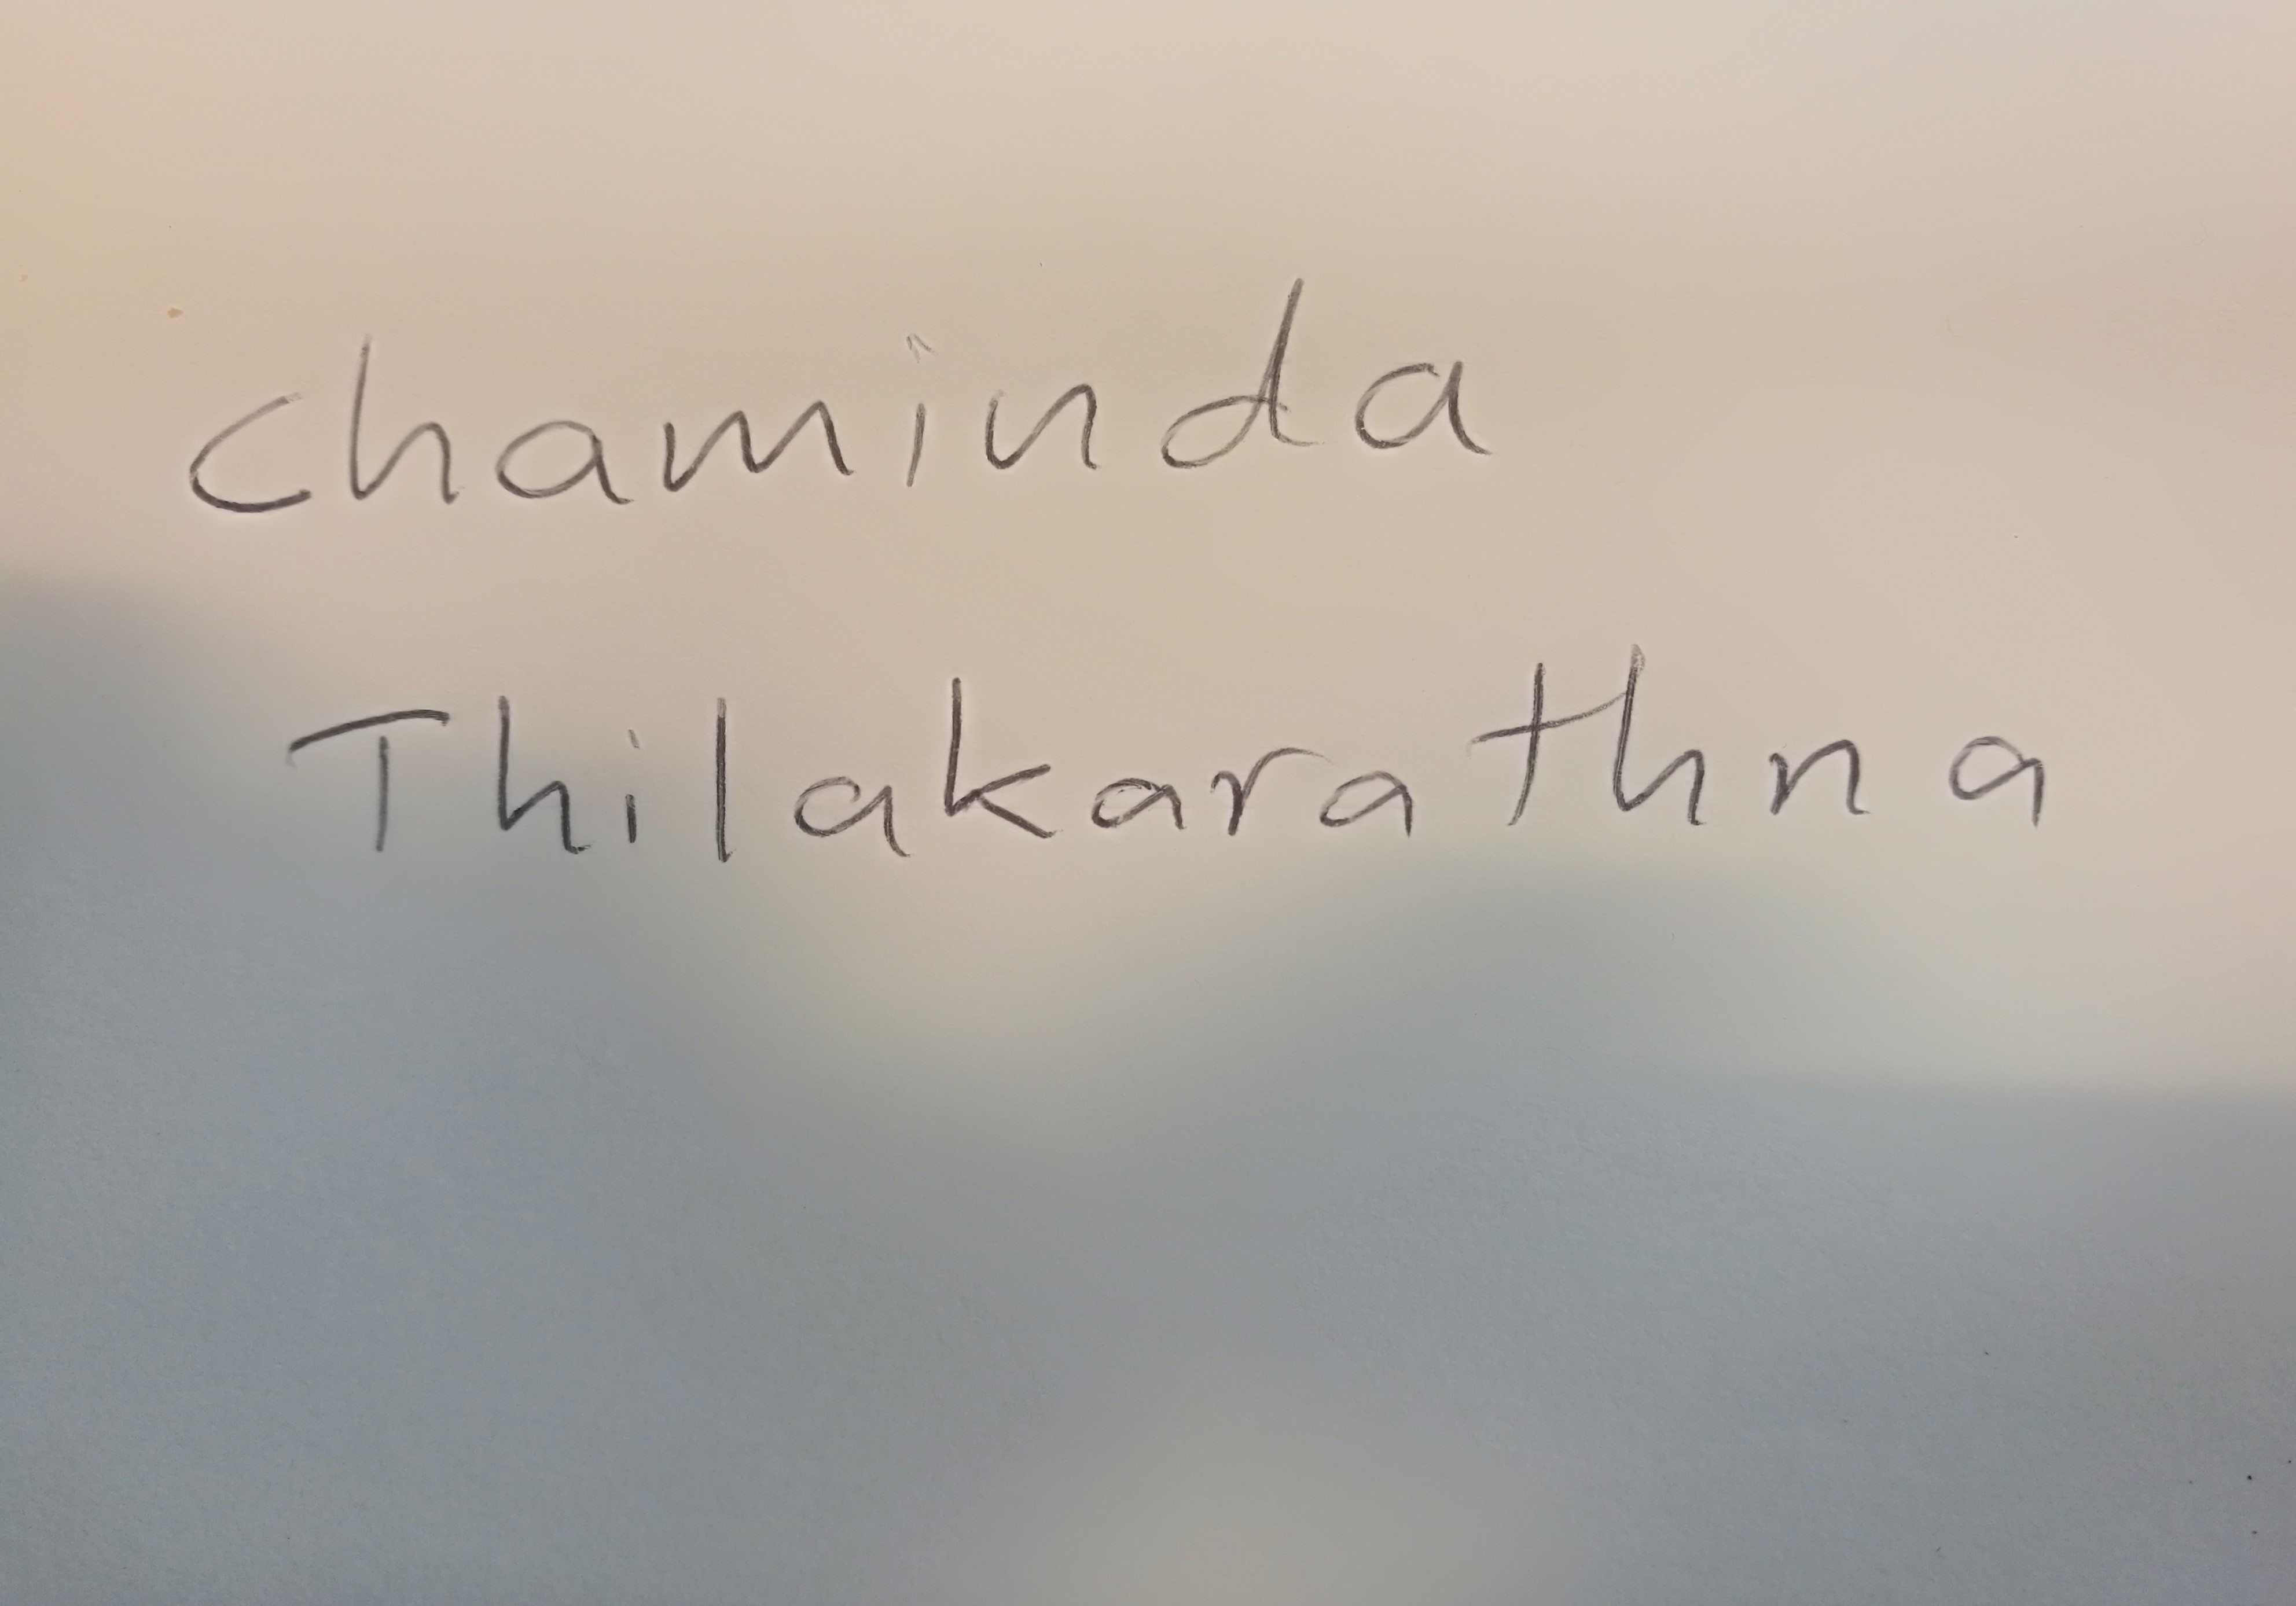 chaminda
Thilakarathna